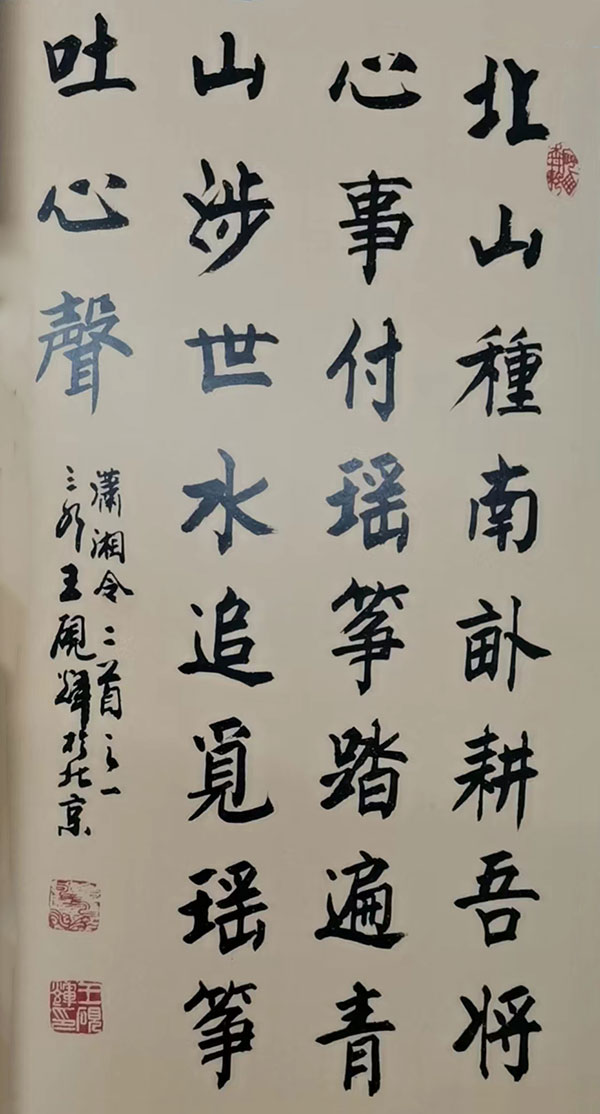 北山種南畝耕吾将
心事付瑶筝踏遍青
山涉世水追覓瑶筝
吐心聲
瀟湘令二首之一
王硯輝於北京
王硯輝印